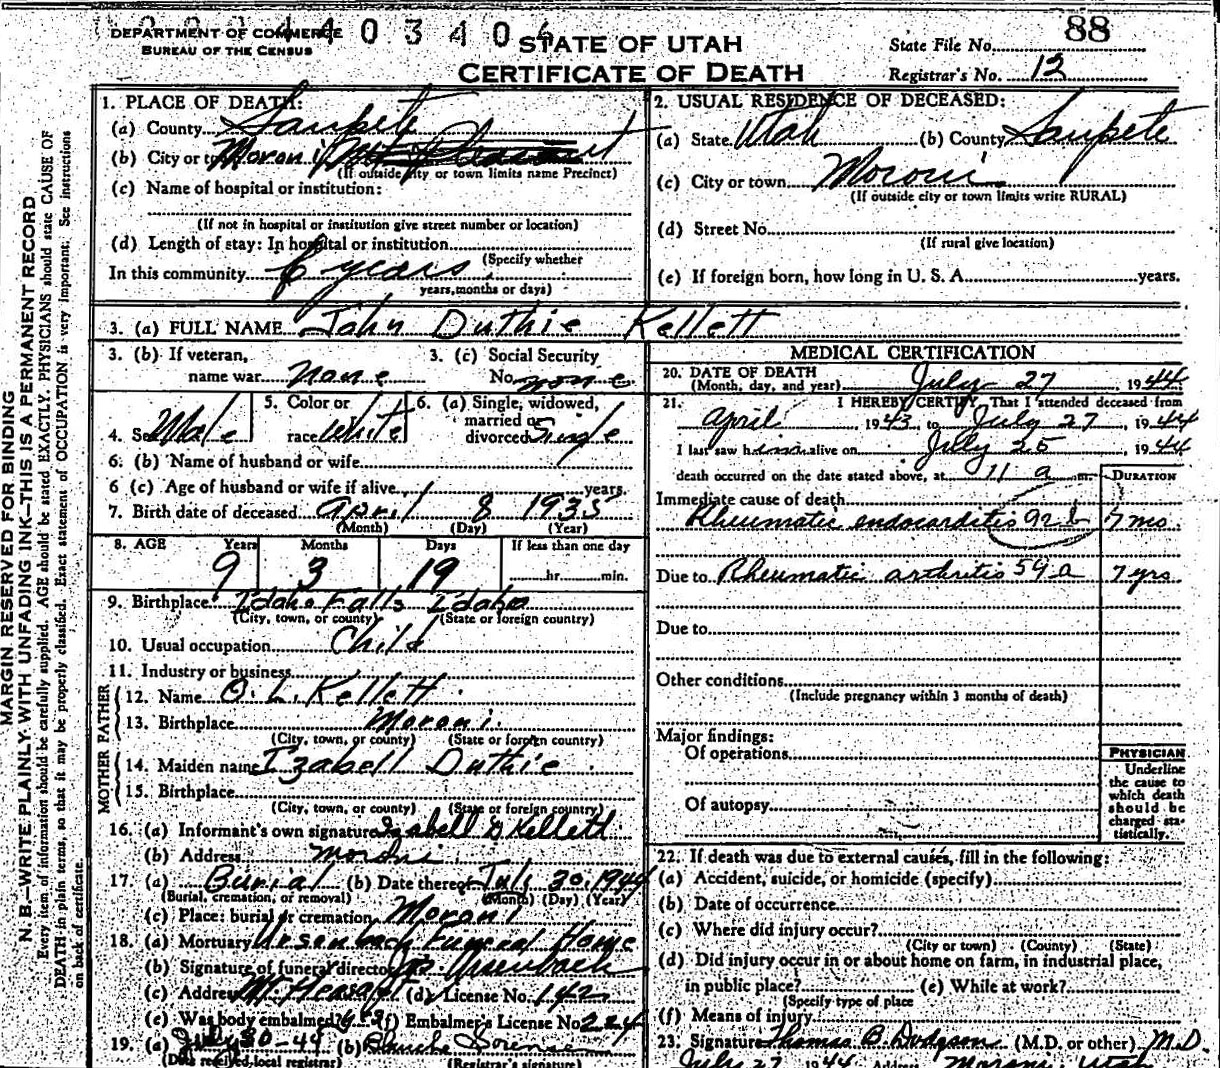 DEPARTMENT OF COMMERCE
BUREAU OF THE CENSUS
STATE OF UTAH
CERTIFICATE OF DEATH
State File No. 88
Registrar's No. 12
MARGIN RESERVED FOR BINDING
N. B.—WRITE PLAINLY, WITH UNFADING INK—THIS IS A PERMANENT RECORD
Every item of information should be carefully supplied. AGE should be stated EXACTLY. PHYSICIANS should state CAUSE OF
DEATH in plain terms, so that it may be properly classified. Exact statement of OCCUPATION is very important. See instructions
on back of certificate.
1. PLACE OF DEATH:
(a) County Sanpete
(b) City or town Moroni
(If outside city or town limits name Precinct)
(c) Name of hospital or institution:
(If not in hospital or institution give street number or location)
(d) Length of stay: In hospital or institution
(Specify whether
In this community 6 years
years, months or days)
2. USUAL RESIDENCE OF DECEASED:
(a) State Utah (b) County Sanpete
(c) City or town Moroni
(If outside city or town limits write RURAL)
(d) Street No.
(If rural give location)
(e) If foreign born, how long in U. S. A. years.
3. (a) FULL NAME John Duthie Kellett
3. (b) If veteran, name war none
3. (c) Social Security No. none
4. Sex Male
5. Color or race White
6. (a) Single, widowed, married or divorced Single
6. (b) Name of husband or wife
6 (c) Age of husband or wife if alive years
7. Birth date of deceased April 8 1935
(Month) (Day) (Year)
8. AGE Years 9 Months 3 Days 19 If less than one day hr. min.
9. Birthplace Idaho Falls Idaho
(City, town, or county) (State or foreign country)
10. Usual occupation Child
11. Industry or business
FATHER
12. Name O. L. Kellett
13. Birthplace Moroni
(City, town, or county) (State or foreign country)
MOTHER
14. Maiden name Izabell Duthie
15. Birthplace
(City, town, or county) (State or foreign country)
16. (a) Informant's own signature Izabell D Kellett
(b) Address Moroni
17. (a) Burial (b) Date thereof July 30, 1944
(Burial, cremation, or removal) (Month) (Day) (Year)
(c) Place: burial or cremation Moroni
18. (a) Mortuary Ursenbach Funeral Home
(b) Signature of funeral director Ursenbach
(c) Address Mt. Pleasant (d) License No. 142
(e) Was body embalmed? yes (f) Embalmer's License No. 224
19. (a) July 30-44 (b) Blanche
(Date received local registrar) (Registrar's signature)
MEDICAL CERTIFICATION
20. DATE OF DEATH
(Month, day, and year) July 27 1944
21. I HEREBY CERTIFY, That I attended deceased from
April 1943, to July 27, 1944
I last saw him alive on July 25, 1944
death occurred on the date stated above, at 11 a m.
DURATION
Immediate cause of death
Rheumatic endocarditis 92b 7 mo.
Due to Rheumatic arthritis 59a 7 yrs
Due to
Other conditions
(Include pregnancy within 3 months of death)
Major findings:
Of operations
Of autopsy
PHYSICIAN
Underline
the cause to
which death
should be
charged sta-
tistically.
22. If death was due to external causes, fill in the following:
(a) Accident, suicide, or homicide (specify)
(b) Date of occurrence
(c) Where did injury occur?
(City or town) (County) (State)
(d) Did injury occur in or about home on farm, in industrial place,
in public place? (e) While at work?
(Specify type of place
(f) Means of injury
23. Signature Thomas B. Dodgson (M.D. or other) M.D.
July 27 1944 Address Moroni, Utah